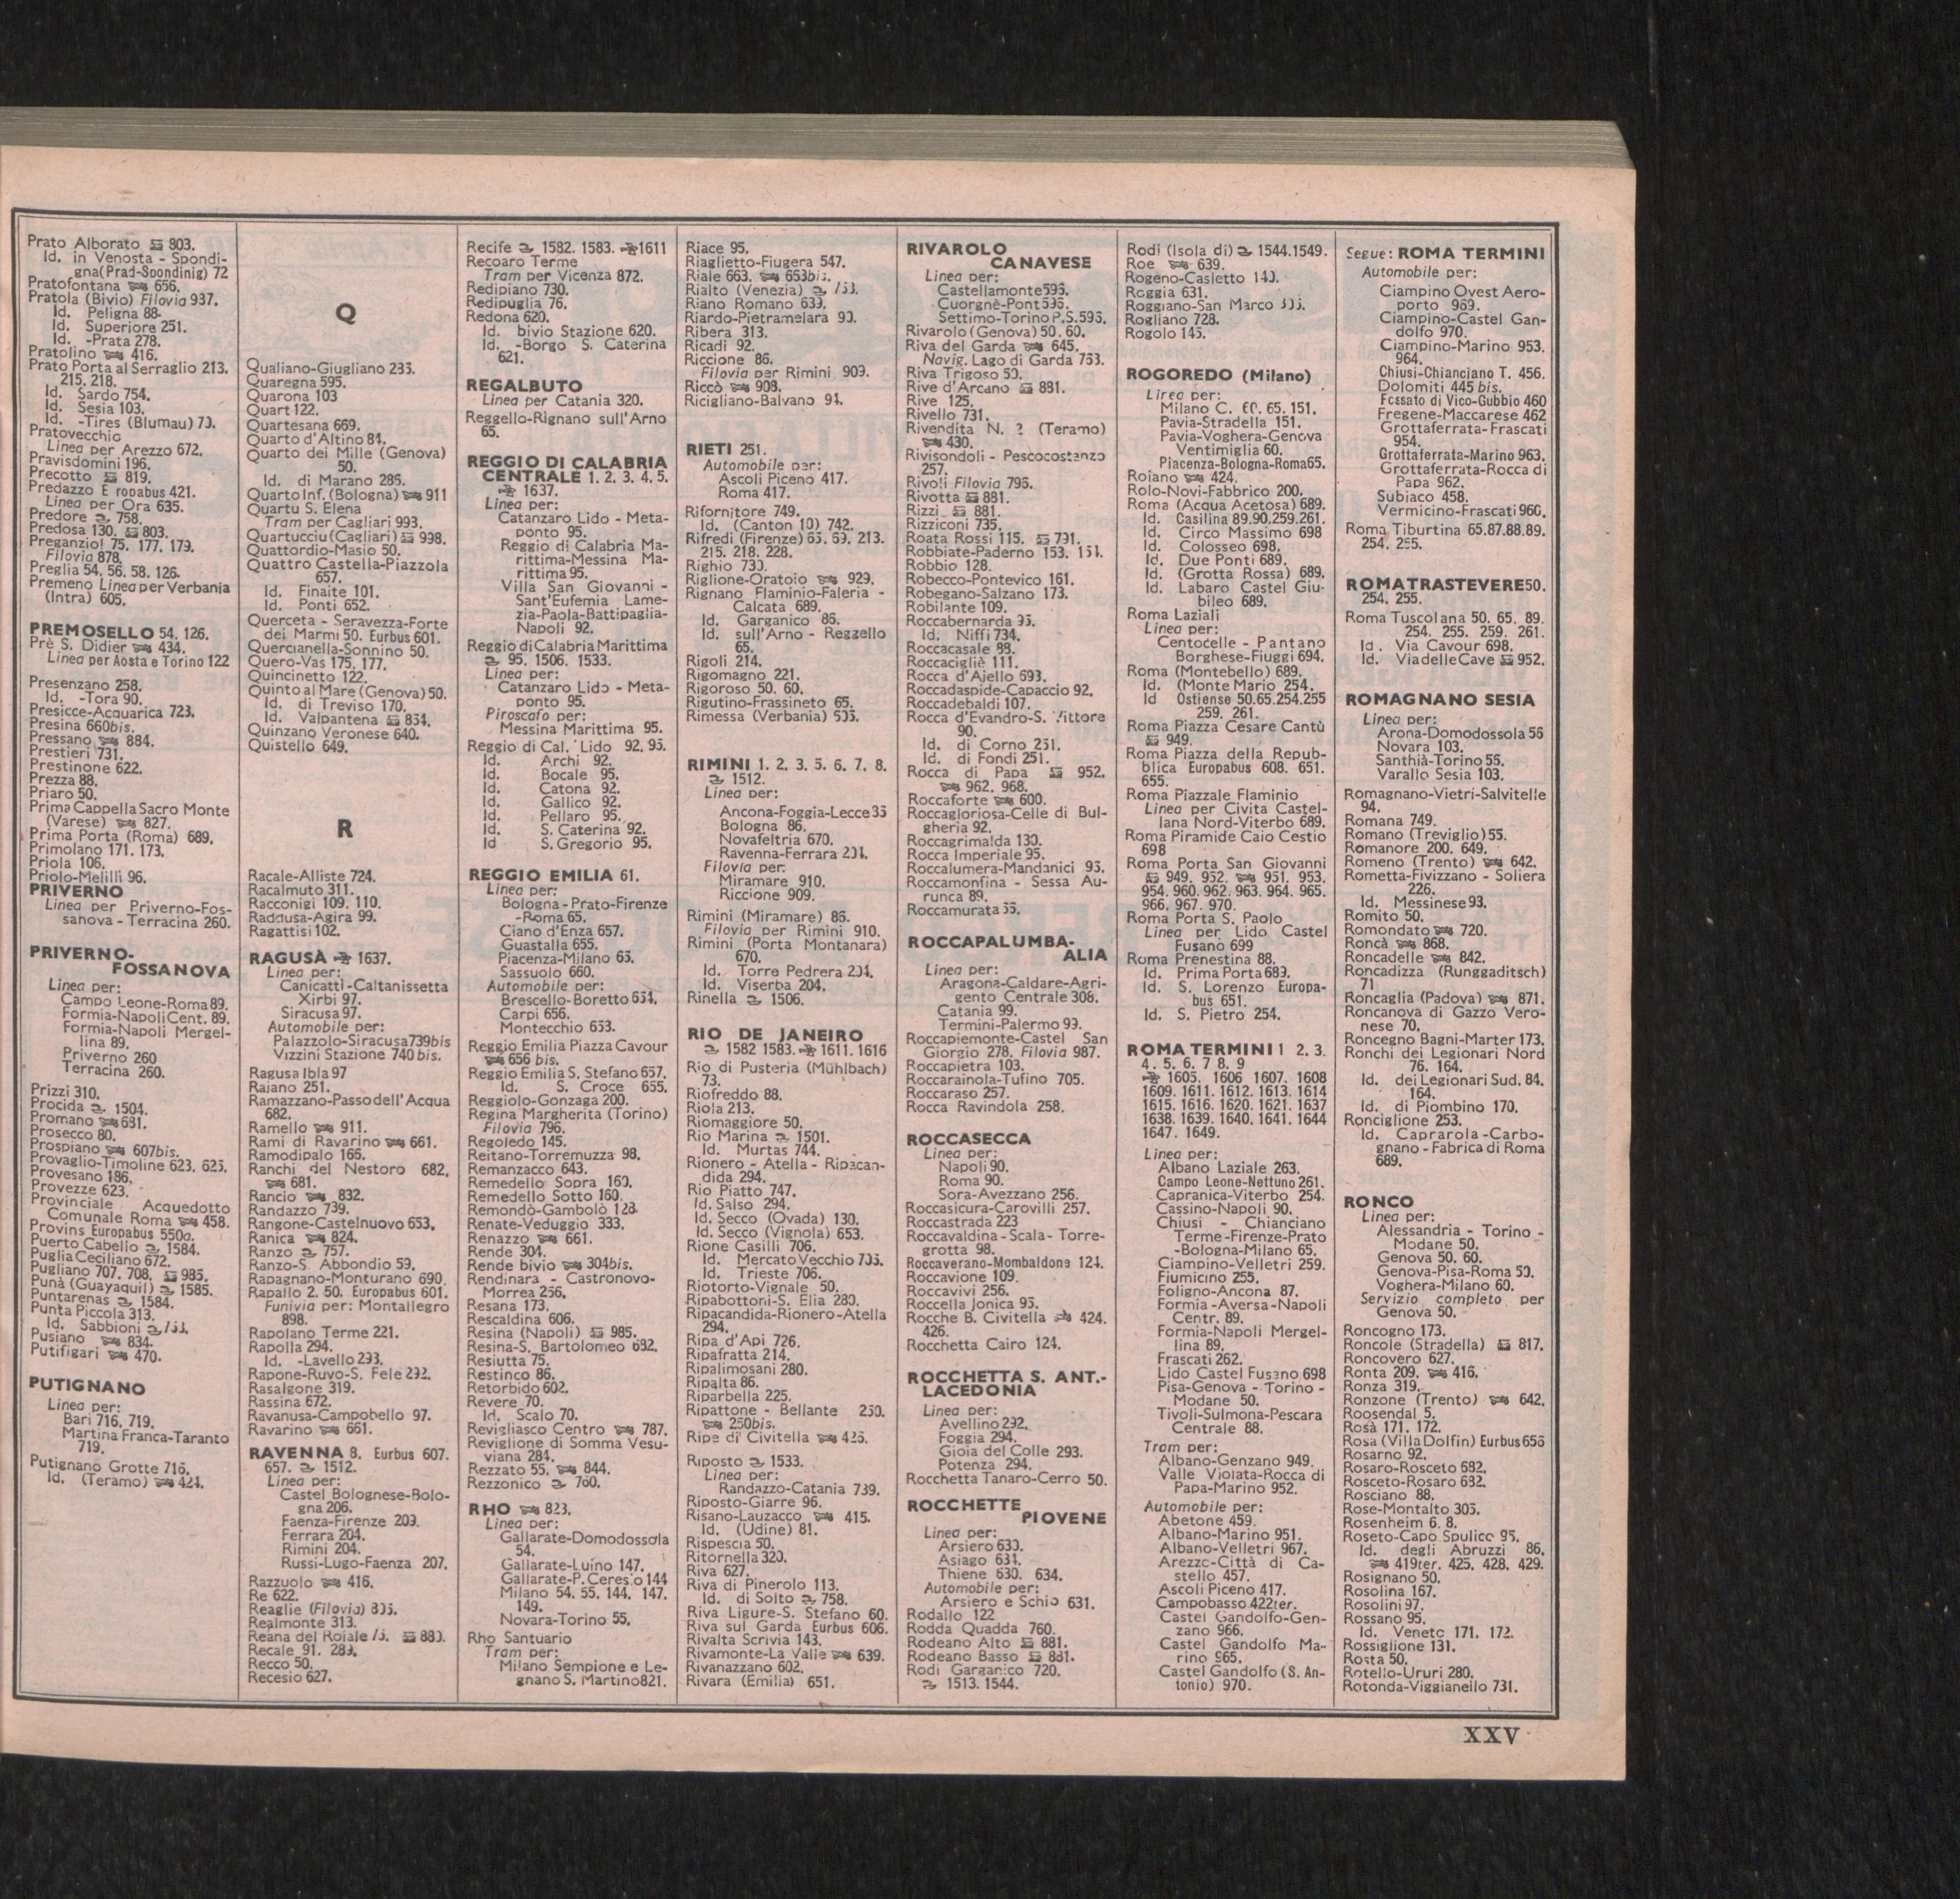 Prato Alborato 803.
Id. in Venosta - Spondi-
gna (Prad-Spondinig) 72
Pratofontana 656.
Pratola (Bivio) Filovia 937.
Id. Peligna 88.
Id. Superiore 251.
Id. -Prata 278.
Pratolino 416.
Prato Porta al Serraglio 213.
215. 218.
Id. Sardo 754.
Id. Sesia 103.
Id. -Tires (Blumau) 70.
Pratovecchio
Linea per Arezzo 672.
Pravisdomini 196.
Precotto 819.
Predazzo E ropabus 421.
Linea per Ora 635.
Predore 758.
Predosa 130. 803.
Preganziol 75. 177. 179.
Filovia 878.
Preglia 54. 56. 58. 126.
Premeno Linea per Verbania
(Intra) 605.
PREMOSELLO 54. 126.
Prè S. Didier 434.
Linea per Aosta e Torino 122
Presenzano 258.
Id. -Tora 90.
Presicce-Acquarica 723.
Presina 660bis.
Pressano 884.
Prestieri 731.
Prestinone 622.
Prezza 88.
Priaro 50.
Prima Cappella Sacro Monte
(Varese) 827.
Prima Porta (Roma) 689.
Primolano 171. 173.
Priola 106.
Priolo-Melilli 96.
PRIVERNO
Linea per Priverno-Fos-
sanova - Terracina 260.
PRIVERNO-
FOSSANOVA
Linea per:
Campo Leone-Roma 89.
Formia-Napoli Cent. 89.
Formia-Napoli Mergel-
lina 89.
Priverno 260
Terracina 260.
Prizzi 310.
Procida 1504.
Promano 681.
Prosecco 80.
Prospiano 607bis.
Provaglio-Timoline 623. 625.
Provesano 186.
Provezze 623.
Provinciale Acquedotto
Comunale Roma 458.
Provins Europabus 550a.
Puerto Cabello 1584.
Puglia Ceciliano 672.
Pugliano 707. 708. 985.
Punà (Guayaquil) 1585.
Puntarenas 1584.
Punta Piccola 313.
Id. Sabbioni 753.
Pusiano 834.
Putifigari 470.
PUTIGNANO
Linea per:
Bari 716. 719.
Martina Franca-Taranto
719.
Putignano Grotte 716.
Id. (Teramo) 424.
Q
Qualiano-Giugliano 285.
Quaregna 595.
Quarona 103
Quart 122.
Quartesana 669.
Quarto d'Altino 84.
Quarto dei Mille (Genova)
50.
Id. di Marano 286.
Quarto Inf. (Bologna) 911
Quartu S. Elena
Tram per Cagliari 993.
Quartucciu (Cagliari) 998.
Quattordio-Masio 50.
Quattro Castella-Piazzola
657.
Id. Finaite 101.
Id. Ponti 652.
Querceta - Seravezza-Forte
dei Marmi 50. Eurbus 601.
Quercianella-Sonnino 50.
Quero-Vas 175. 177.
Quincinetto 122.
Quinto al Mare (Genova) 50.
Id. di Treviso 170.
Id. Valpantena 854.
Quinzano Veronese 640.
Quistello 649.
R
Racale-Alliste 724.
Racalmuto 311.
Racconigi 109. 110.
Raddusa-Agira 99.
Ragattisi 102.
RAGUSÀ 1637.
Linea per:
Canicattì-Caltanissetta
Xirbi 97.
Siracusa 97.
Automobile per:
Palazzolo-Siracusa 739bis
Vizzini Stazione 740 bis.
Ragusa Ibla 97
Raiano 251.
Ramazzano-Passo dell'Acqua
682.
Ramello 911.
Rami di Ravarino 661.
Ramodipalo 166.
Ranchi del Nestoro 682.
681.
Rancio 832.
Randazzo 739.
Rangone-Castelnuovo 653.
Ranica 824.
Ranzo 757.
Ranzo-S. Abbondio 59.
Rapagnano-Monturano 690.
Rapallo 2. 50. Europabus 601.
Funivia per: Montallegro
898.
Rapolano Terme 221.
Rapolla 294.
Id. -Lavello 293.
Rapone-Ruvo-S. Fele 292.
Rasalgone 319.
Rassina 672.
Ravanusa-Campobello 97.
Ravarino 661.
RAVENNA 8. Eurbus 607.
657. 1512.
Linea per:
Castel Bolognese-Bolo-
gna 206.
Faenza-Firenze 209.
Ferrara 204.
Rimini 204.
Russi-Lugo-Faenza 207.
Razzuolo 416.
Re 622.
Reaglie (Filovia) 805.
Realmonte 313.
Reana del Roiale 75. 880.
Recale 91. 283.
Recco 50.
Recesio 627.
Recife 1582. 1583. 1611
Recoaro Terme
Tram per Vicenza 872.
Redipiano 730.
Redipuglia 76.
Redona 620.
Id. bivio Stazione 620.
Id. -Borgo S. Caterina
621.
REGALBUTO
Linea per Catania 320.
Reggello-Rignano sull'Arno
65.
REGGIO DI CALABRIA
CENTRALE 1. 2. 3. 4. 5.
1637.
Linea per:
Catanzaro Lido - Meta-
ponto 95.
Reggio di Calabria Ma-
rittima-Messina Ma-
rittima 95.
Villa San Giovanni -
Sant'Eufemia Lame-
zia-Paola-Battipaglia-
Napoli 92.
Reggio di Calabria Marittima
95. 1506. 1533.
Linea per:
Catanzaro Lido - Meta-
ponto 95.
Piroscafo per:
Messina Marittima 95.
Reggio di Cal. Lido 92. 95.
Id. Archi 92.
Id. Bocale 95.
Id. Catona 92.
Id. Gallico 92.
Id. Pellaro 95.
Id. S. Caterina 92.
Id S. Gregorio 95.
REGGIO EMILIA 61.
Linea per:
Bologna-Prato-Firenze
-Roma 65.
Ciano d'Enza 657.
Guastalla 655.
Piacenza-Milano 65.
Sassuolo 660.
Automobile per:
Brescello-Boretto 654.
Carpi 656.
Montecchio 653.
Reggio Emilia Piazza Cavour
656 bis.
Reggio Emilia S. Stefano 657.
Id. S. Croce 655.
Reggiolo-Gonzaga 200.
Regina Margherita (Torino)
Filovia 796.
Regoledo 145.
Reitano-Torremuzza 98.
Remanzacco 643.
Remedello Sopra 160.
Remedello Sotto 160.
Remondò-Gambolò 128.
Renate-Veduggio 333.
Renazzo 661.
Rende 304.
Rende bivio 304bis.
Rendinara - Castronovo-
Morrea 256.
Resana 173.
Rescaldina 606.
Resina (Napoli) 985.
Resina-S. Bartolomeo 682.
Resiutta 75.
Restinco 86.
Retorbido 602.
Revere 70.
Id. Scalo 70.
Revigliasco Centro 787.
Reviglione di Somma Vesu-
viana 284.
Rezzato 55. 844.
Rezzonico 760.
RHO 823.
Linea per:
Gallarate-Domodossola
54.
Gallarate-Luino 147.
Gallarate-P. Ceresio 144
Milano 54. 55. 144. 147.
149.
Novara-Torino 55.
Rho Santuario
Tram per:
Milano Sempione e Le-
gnano S. Martino 821.
Riace 95.
Riaglietto-Fiugera 547.
Riale 663. 653bis.
Rialto (Venezia) 753.
Riano Romano 639.
Riardo-Pietramelara 90.
Ribera 313.
Ricadi 92.
Riccione 86.
Filovia per Rimini 909.
Riccò 908.
Ricigliano-Balvano 94.
RIETI 251.
Automobile per:
Ascoli Piceno 417.
Roma 417.
Rifornitore 749.
Id. (Canton 10) 742.
Rifredi (Firenze) 65. 69. 213.
215. 218. 228.
Righio 730.
Riglione-Oratoio 929.
Rignano Flaminio-Faleria -
Calcata 689.
Id. Garganico 86.
Id. sull'Arno - Reggello
65.
Rigoli 214.
Rigomagno 221.
Rigoroso 50. 60.
Rigutino-Frassineto 65.
Rimessa (Verbania) 505.
RIMINI 1. 2. 3. 5. 6. 7. 8.
1512.
Linea per:
Ancona-Foggia-Lecce 86
Bologna 86.
Novafeltria 670.
Ravenna-Ferrara 204.
Filovia per:
Miramare 910.
Riccione 909.
Rimini (Miramare) 86.
Filovia per Rimini 910.
Rimini (Porta Montanara)
670.
Id. Torre Pedrera 204.
Id. Viserba 204.
Rinella 1506.
RIO DE JANEIRO
1582 1583. 1611. 1616
Rio di Pusteria (Mühlbach)
73.
Riofreddo 88.
Riola 213.
Riomaggiore 50.
Rio Marina 1501.
Id. Murtas 744.
Rionero - Atella - Ripacan-
dida 294.
Rio Piatto 747.
Id. Salso 294.
Id. Secco (Ovada) 130.
Id. Secco (Vignola) 653.
Rione Casilli 706.
Id. Mercato Vecchio 706.
Id. Trieste 706.
Riotorto-Vignale 50.
Ripabottoni-S. Elia 280.
Ripacandida-Rionero-Atella
294.
Ripa d'Api 726.
Ripafratta 214.
Ripalimosani 280.
Ripalta 86.
Riparbella 225.
Ripattone - Bellante 250.
250bis.
Ripe di Civitella 426.
Riposto 1533.
Linea per:
Randazzo-Catania 739.
Riposto-Giarre 96.
Risano-Lauzacco 415.
Id. (Udine) 81.
Rispescia 50.
Ritornella 320.
Riva 627.
Riva di Pinerolo 113.
Id. di Solto 758.
Riva Ligure-S. Stefano 60.
Riva sul Garda Eurbus 606.
Rivalta Scrivia 143.
Rivamonte-La Valle 639.
Rivanazzano 602.
Rivara (Emilia) 651.
RIVAROLO
CANAVESE
Linea per:
Castellamonte 596.
Cuorgnè-Pont 596.
Settimo-Torino P.S. 596.
Rivarolo (Genova) 50. 60.
Riva del Garda 645.
Navig. Lago di Garda 763.
Riva Trigoso 50.
Rive d'Arcano 881.
Rive 125.
Rivello 731.
Rivendita N. 2 (Teramo)
430.
Rivisondoli - Pescocostanzo
257.
Rivoli Filovia 796.
Rivotta 881.
Rizzi 881.
Rizziconi 735.
Roata Rossi 115. 791.
Robbiate-Paderno 153. 154.
Robbio 128.
Robecco-Pontevico 161.
Robegano-Salzano 173.
Robilante 109.
Roccabernarda 95.
Id. Niffi 734.
Roccacasale 88.
Roccacigliè 111.
Rocca d'Ajello 693.
Roccadaspide-Capaccio 92.
Roccadebaldi 107.
Rocca d'Evandro-S. Vittore
90.
Id. di Corno 251.
Id. di Fondi 251.
Rocca di Papa 952.
962. 968.
Roccaforte 600.
Roccagloriosa-Celle di Bul-
gheria 92.
Roccagrimalda 130.
Rocca Imperiale 95.
Roccalumera-Mandanici 96.
Roccamonfina - Sessa Au-
runca 89.
Roccamurata 56.
ROCCAPALUMBA-
ALIA
Linea per:
Aragona-Caldare-Agri-
gento Centrale 308.
Catania 99.
Termini-Palermo 99.
Roccapiemonte-Castel San
Giorgio 278. Filovia 987.
Roccapietra 103.
Roccarainola-Tufino 705.
Roccaraso 257.
Rocca Ravindola 258.
ROCCASECCA
Linea per:
Napoli 90.
Roma 90.
Sora-Avezzano 256.
Roccasicura-Carovilli 257.
Roccastrada 223
Roccavaldina-Scala-Torre-
grotta 98.
Roccaverano-Mombaldone 124.
Roccavione 109.
Roccavivi 256.
Roccella Jonica 95.
Rocche B. Civitella 424.
426.
Rocchetta Cairo 124.
ROCCHETTA S. ANT.-
LACEDONIA
Linea per:
Avellino 292.
Foggia 294.
Gioia del Colle 293.
Potenza 294.
Rocchetta Tanaro-Cerro 50.
ROCCHETTE
PIOVENE
Linea per:
Arsiero 630.
Asiago 634.
Thiene 630. 634.
Automobile per:
Arsiero e Schio 631.
Rodallo 122
Rodda Quadda 760.
Rodeano Alto 881.
Rodeano Basso 881.
Rodi Garganico 720.
1513. 1544.
Rodi (Isola di) 1544. 1549.
Roe 639.
Rogeno-Casletto 140.
Roggia 631.
Roggiano-San Marco 305.
Rogliano 728.
Rogolo 145.
ROGOREDO (Milano)
Linea per:
Milano C. 60. 65. 151.
Pavia-Stradella 151.
Pavia-Voghera-Genova
Ventimiglia 60.
Piacenza-Bologna-Roma 65.
Roiano 424.
Rolo-Novi-Fabbrico 200.
Roma (Acqua Acetosa) 689.
Id. Casilina 89.90.259.261.
Id. Circo Massimo 698
Id. Colosseo 698.
Id. Due Ponti 689.
Id. (Grotta Rossa) 689.
Id. Labaro Castel Giu-
bileo 689.
Roma Laziali
Linea per:
Centocelle - Pantano
Borghese-Fiuggi 694.
Roma (Montebello) 689.
Id. (Monte Mario 254.
Id Ostiense 50.65.254.255
259. 261.
Roma Piazza Cesare Cantù
949.
Roma Piazza della Repub-
blica Europabus 608. 651.
655.
Roma Piazzale Flaminio
Linea per Civita Castel-
lana Nord-Viterbo 689.
Roma Piramide Caio Cestio
698
Roma Porta San Giovanni
949. 952. 951. 953.
954. 960. 962. 963. 964. 965.
966. 967. 970.
Roma Porta S. Paolo
Linea per Lido Castel
Fusano 699
Roma Prenestina 88.
Id. Prima Porta 689.
Id. S. Lorenzo Europa-
bus 651.
Id. S. Pietro 254.
ROMA TERMINI 1 2. 3.
4. 5. 6. 7 8. 9
1605. 1606 1607. 1608
1609. 1611. 1612. 1613. 1614
1615. 1616. 1620. 1621. 1637
1638. 1639. 1640. 1641. 1644
1647. 1649.
Linea per:
Albano Laziale 263.
Campo Leone-Nettuno 261.
Capranica-Viterbo 254.
Cassino-Napoli 90.
Chiusi - Chianciano
Terme-Firenze-Prato
-Bologna-Milano 65.
Ciampino-Velletri 259.
Fiumicino 255.
Foligno-Ancona 87.
Formia-Aversa-Napoli
Centr. 89.
Formia-Napoli Mergel-
lina 89.
Frascati 262.
Lido Castel Fusano 698
Pisa-Genova - Torino -
Modane 50.
Tivoli-Sulmona-Pescara
Centrale 88.
Tram per:
Albano-Genzano 949.
Valle Violata-Rocca di
Papa-Marino 952.
Automobile per:
Abetone 459.
Albano-Marino 951.
Albano-Velletri 967.
Arezzo-Città di Ca-
stello 457.
Ascoli Piceno 417.
Campobasso 422ter.
Castel Gandolfo-Gen-
zano 966.
Castel Gandolfo Ma-
rino 965.
Castel Gandolfo (S. An-
tonio) 970.
Segue: ROMA TERMINI
Automobile per:
Ciampino Ovest Aero-
porto 969.
Ciampino-Castel Gan-
dolfo 970.
Ciampino-Marino 953.
964.
Chiusi-Chianciano T. 456.
Dolomiti 445 bis.
Fossato di Vico-Gubbio 460
Fregene-Maccarese 462
Grottaferrata-Frascati
954.
Grottaferrata-Marino 963.
Grottaferrata-Rocca di
Papa 962.
Subiaco 458.
Vermicino-Frascati 960.
Roma Tiburtina 65.87.88.89.
254. 255.
ROMA TRASTEVERE 50.
254. 255.
Roma Tuscolana 50. 65. 89.
254. 255. 259. 261.
Id. Via Cavour 698.
Id. Via delle Cave 952.
ROMAGNANO SESIA
Linea per:
Arona-Domodossola 56
Novara 103.
Santhià-Torino 56.
Varallo Sesia 103.
Romagnano-Vietri-Salvitelle
94.
Romana 749.
Romano (Treviglio) 55.
Romanore 200. 649.
Romeno (Trento) 642.
Rometta-Fivizzano - Soliera
226.
Id. Messinese 98.
Romito 50.
Romondato 720.
Roncà 868.
Roncadelle 842.
Roncadizza (Runggaditsch)
71
Roncaglia (Padova) 871.
Roncanova di Gazzo Vero-
nese 70.
Roncegno Bagni-Marter 173.
Ronchi dei Legionari Nord
76. 164.
Id. dei Legionari Sud. 84.
164.
Id. di Piombino 170.
Ronciglione 253.
Id. Caprarola-Carbo-
gnano - Fabrica di Roma
689.
RONCO
Linea per:
Alessandria - Torino -
Modane 50.
Genova 50. 60.
Genova-Pisa-Roma 50.
Voghera-Milano 60.
Servizio completo per
Genova 50.
Roncogno 173.
Roncole (Stradella) 817.
Roncovero 627.
Ronta 209. 416.
Ronza 319.
Ronzone (Trento) 642.
Roosendal 5.
Rosà 171. 172.
Rosa (Villa Dolfin) Eurbus 656
Rosarno 92.
Rosaro-Rosceto 682.
Rosceto-Rosaro 682.
Rosciano 88.
Rose-Montalto 305.
Rosenheim 6. 8.
Roseto-Capo Spulico 95.
Id. degli Abruzzi 86.
419ter. 425. 428. 429.
Rosignano 50.
Rosolina 167.
Rosolini 97.
Rossano 95.
Id. Veneto 171. 172.
Rossiglione 131.
Rosta 50.
Rotello-Ururi 280.
Rotonda-Viggianello 731.
XXV